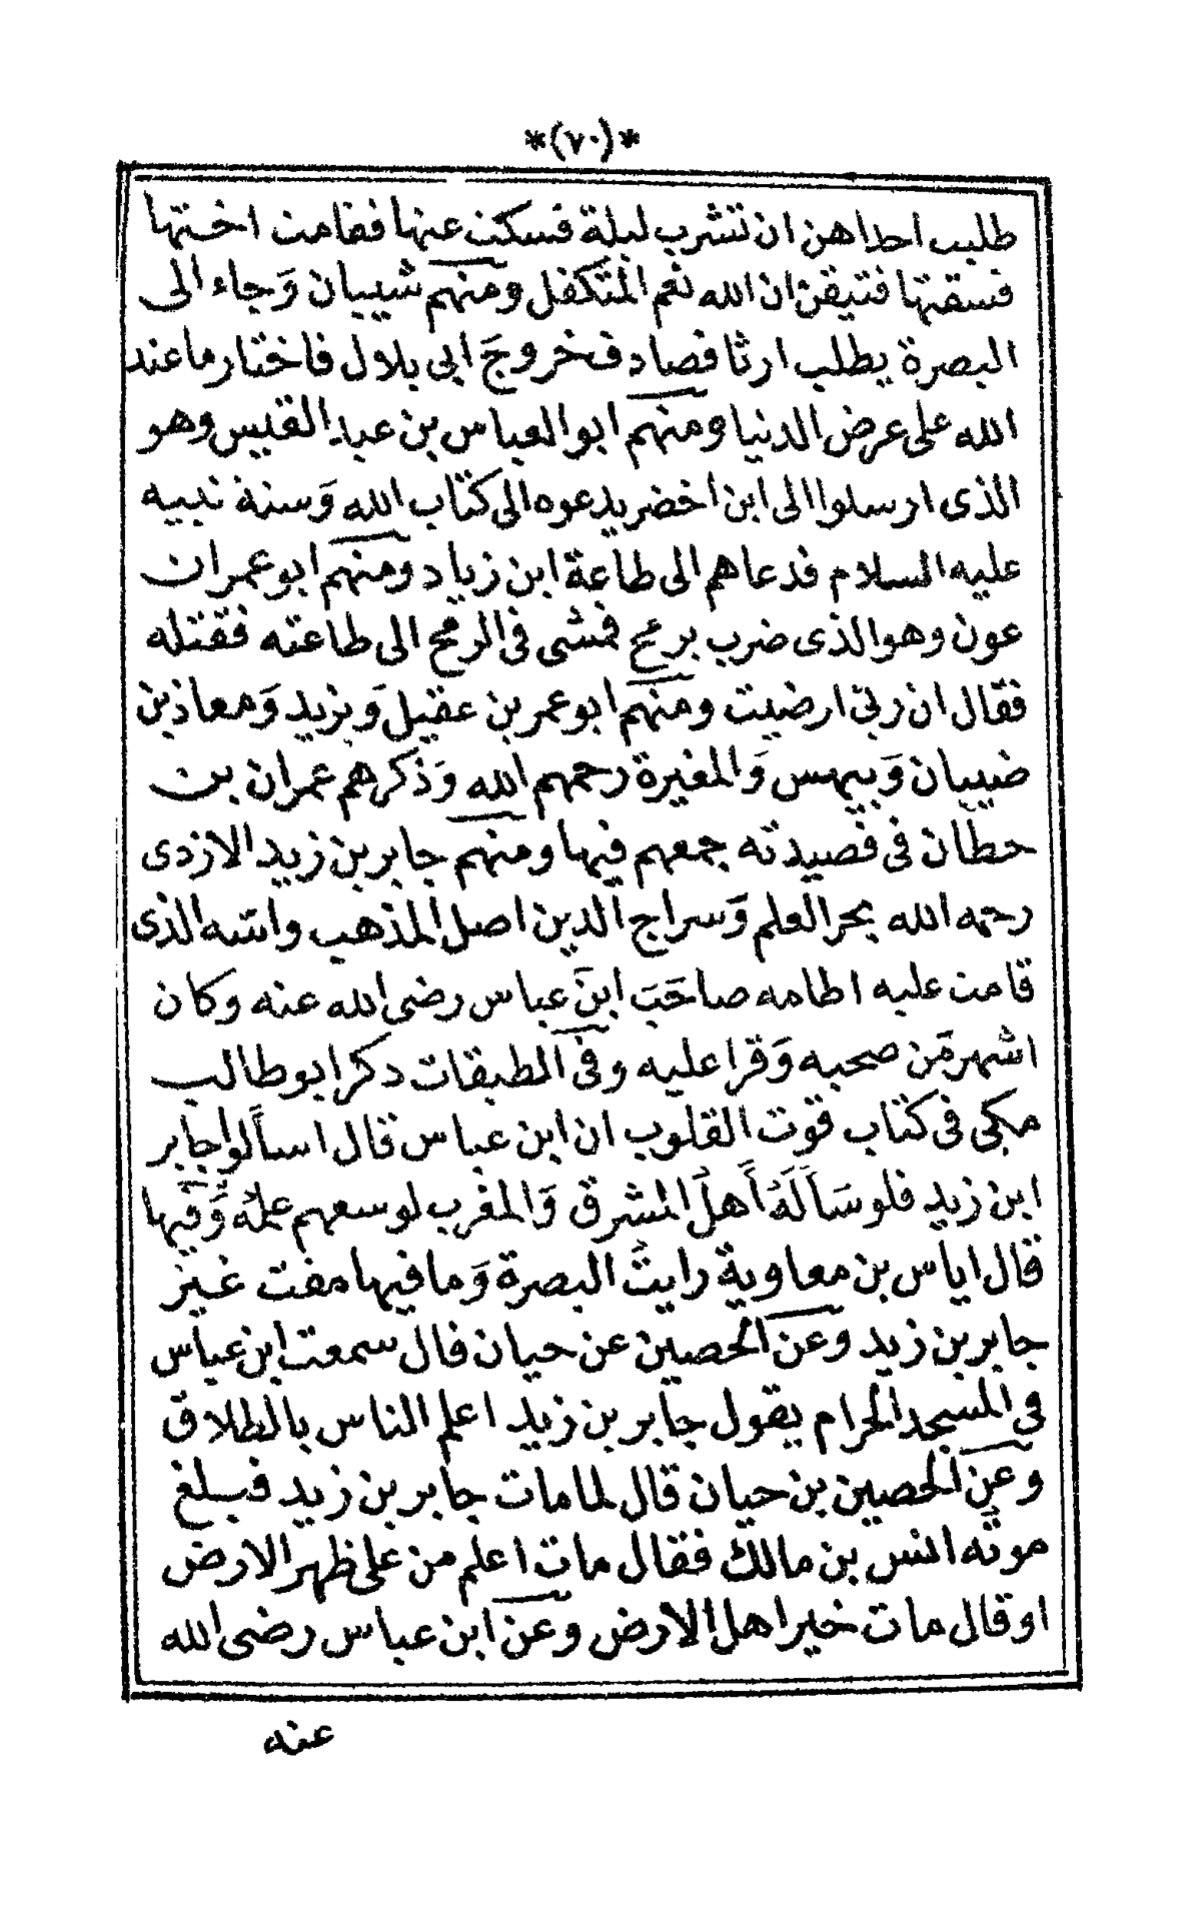 *(٧٠)*
طلبت احداهن ان تشرب ليلة فسكت عنها فقامت اختها
فسقتها فتيقن ان الله نعم المتكفل ومنهم شيبان وَجاء الى
البصرة يطلب ارثا فصادف خروجَ ابى بلال فاختار ما عند
الله على عرض الدنيا ومنهم ابو العباس بن عبد القيس وهو
الذى ارسلوا الى ابن اخضر يدعوه الى كتاب الله وَسنة نبيه
عليه السلام فدعاهم الى طاعة ابن زياد ومنهم ابو عمران
عون وهو الذى ضرب برمح فمشى فى الرمح الى طاعنه فقتله
فقال ان ربى ارضيت ومنهم ابو عمر بن عقيل وَيزيد وَمعاذ بن
ضبيان وَبيهس وَالمغيرة رحمهم الله وَذكرهم عمران بن
حطان فى قصيدته جمعهم فيها ومنهم جابر بن زيد الازدى
رحمه الله بحر العلم وَسراج الدين اصل المذهب واسّه الذى
قامت عليه اطامه صاحَبَ ابنَ عباس رضى الله عنه وكان
اشهر مَن صحبه وَقرا عليه وفى الطبقات ذكر ابو طالب
مكى فى كتاب قوت القلوب ان ابن عباس قال اسألوا جابر
ابن زيد فلو سَأَلَهُ أَهلُ المشرق وَالمغرب لوسعهم علمُه وَفيها
قال اياس بن معاوية رايتُ البصرة وَما فيها مفت غير
جابر بن زيد وعن الحصين عن حيان قال سمعت ابن عباس
فى المسجد الحرام يقول جابر بن زيد اعلم الناس بالطلاق
وعن الحصين بن حيان قال لما مات جابر بن زيد فبلغ
موتُه انس بن مالك فقال مات اعلم من على ظهر الارض
او قال مات خير اهل الارض وعن ابن عباس رضى الله
عنه